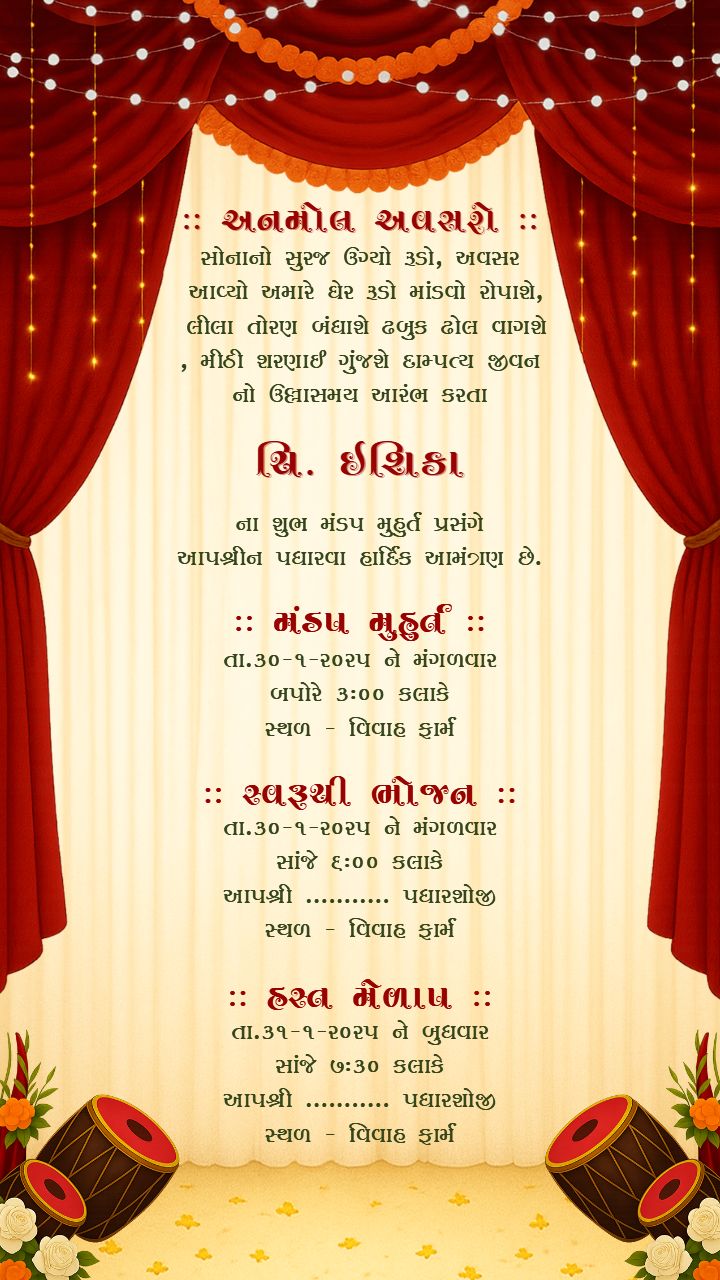 :: અનમોલ અવસરો ::
સોનાનો સુરજ ઉગ્યો રૂડો, અવસર
આવ્યો અમારે ઘેર રૂડો માંડવો રોપાશે,
લીલા તોરણ બંધાશે ઢબુક ઢોલ વાગશે
, મીઠી શરણાઈ ગુંજશે દામ્પત્ય જીવન
નો ઉલ્લાસમય આરંભ કરતા
ચિ. ઈશિકા
ના શુભ મંડપ મુહુર્ત પ્રસંગે
આપશ્રીન પધારવા હાર્દિક આમંત્રણ છે.
:: મંડપ મુહુર્ત ::
તા.૩૦-૧-૨૦૨૫ ને મંગળવાર
બપોરે ૩:૦૦ કલાકે
સ્થળ - વિવાહ ફાર્મ
:: સ્વરૂચી ભોજન ::
તા.૩૦-૧-૨૦૨૫ ને મંગળવાર
સાંજે ૬:૦૦ કલાકે
આપશ્રી ........... પધારશોજી
સ્થળ - વિવાહ ફાર્મ
:: હસ્ત મેળાપ ::
તા.૩૧-૧-૨૦૨૫ ને બુધવાર
સાંજે ૭:૩૦ કલાકે
આપશ્રી ........... પધારશોજી
સ્થળ - વિવાહ ફાર્મ